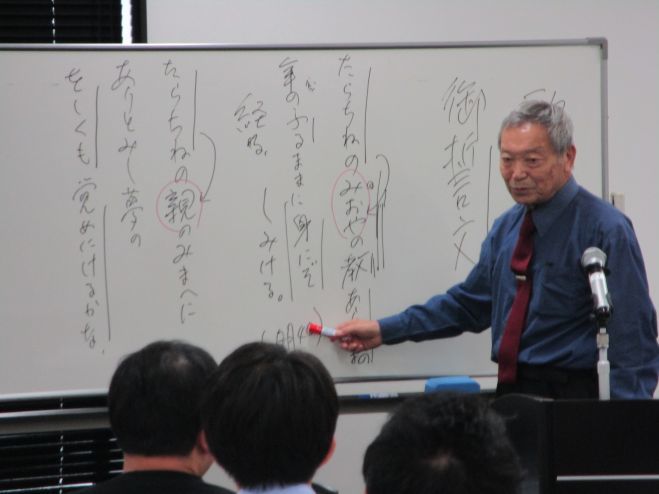 御誓言文
たらちねのみおやの教
年のふるままに身にぞ
経る。
しみける。
(明4
たらちねの親のみまへに
ありとみし夢の
をしくも覚めにけるかな。